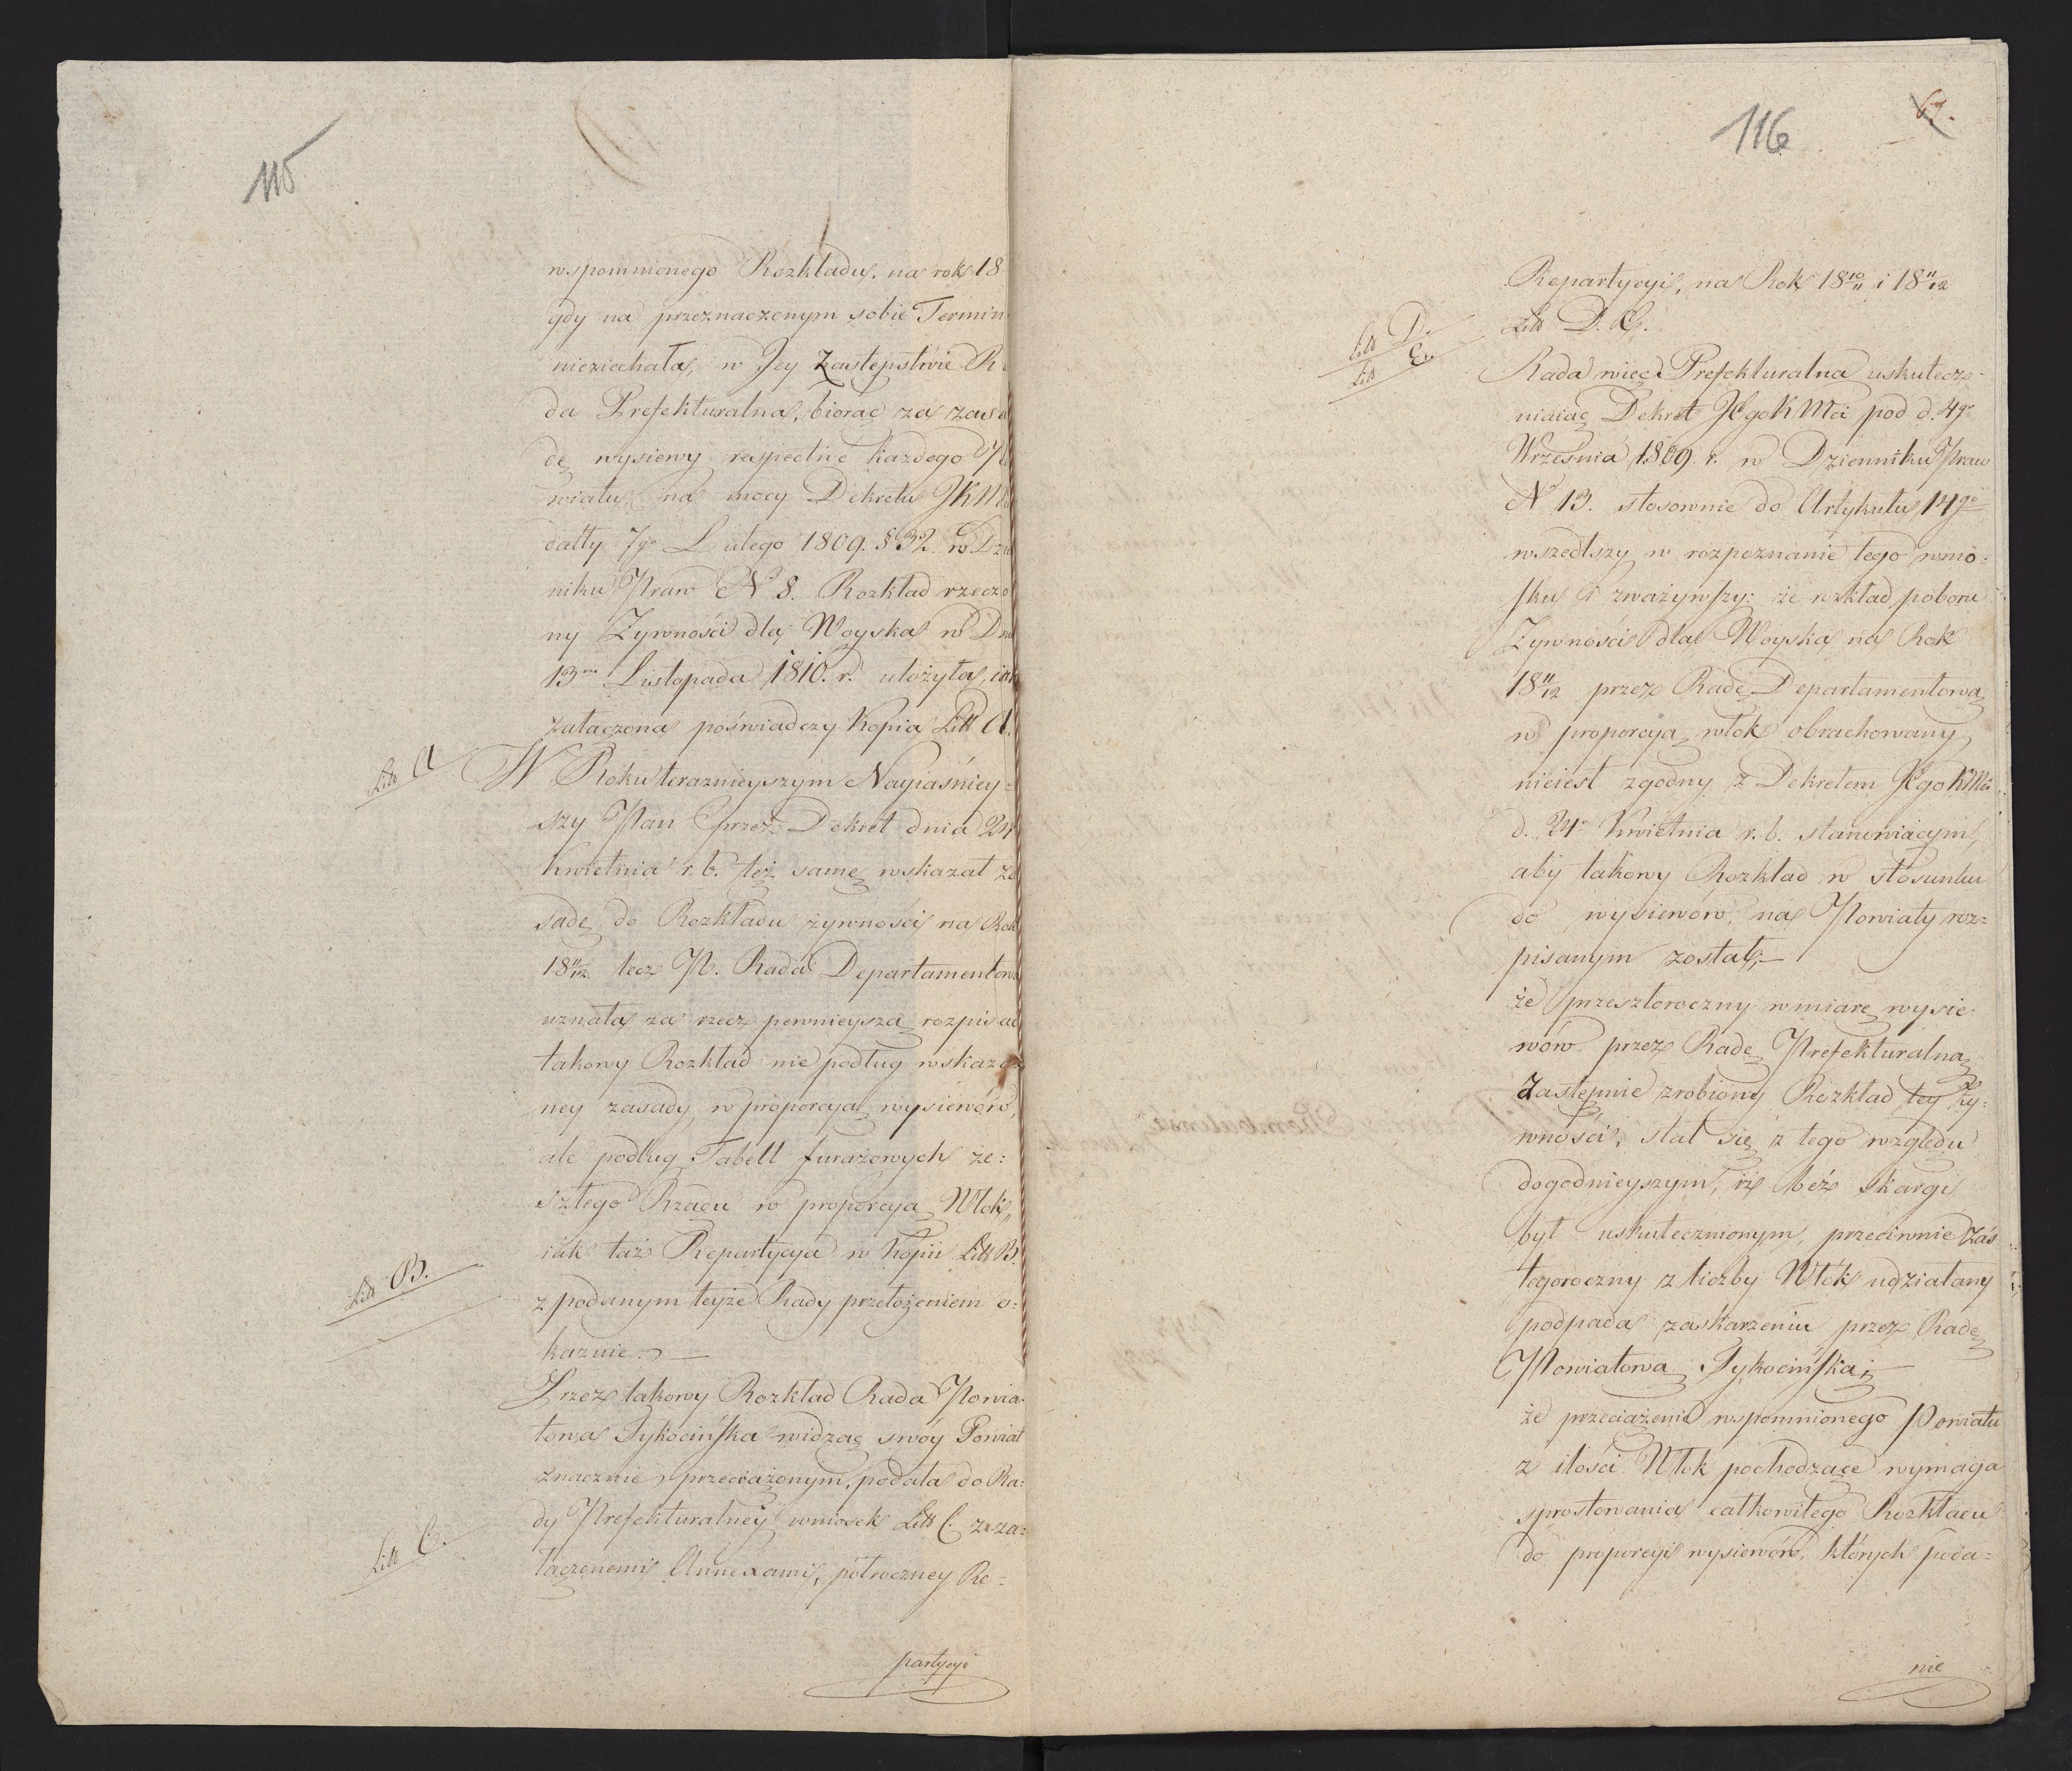 115
wspomnionego Rozkładu, na rok 18
gdy na przeznaczonym sobie Termin
niezjechała, w Jey Zastępstwie R
da Prefekturalna, biorąc za zasa
dę wysiewy respective każdego P
wiatu, na mocy Dekretu JKM
datty 7go Lutego 1809. § 32. w Dzie
niku Praw No 8. Rozkład rzeczo
ny Żywności dla Woyska w Dniu
13m Listopada 1810. r. ułożyła, iak
załączona poświadczy Kopia Litt A.
Litt A
W Roku teraznieyszym Nayiaśniey-
szy Pan przez Dekret dnia 24
Kwietnia r. b. też samę wskazał za
sadę do Rozkładu żywności na Rok
18 11/12 lecz P. Rada Departamentowa
uznała za rzecz pewnieyszą rozpisać
takowy Rozkład nie podług wskaza
ney zasady w proporcyą wysiewów,
ale podług Tabell furażowych ze:
szłego Rządu w proporcyą Włok,
iak taż Repartycya w Kopii Litt B.
Litt B.
z podanym teyże Rady przełożeniem o:
każuie. —
Przez takowy Rozkład Rada Powia-
towa Tykocińska widząc swóy Powiat
znacznie przeciążonym, podała do Ra:
dy Prefekturalney wniosek Litt C. z za:
Litt C.
łączonemi Annexami, półroczney Re-
partycyi
116
61.
Repartycyi, na Rok 18 10/11 i 18 11/12
Litt D. E.
Litt D.
Litt E.
Rada więc Prefekturalna uskutecz-
niaiąc Dekret JEgo K Mci pod d. 4go
Września 1809. r. w Dzienniku Praw
No 13. stosownie do Artykułu 14go
wszedłszy w rozpoznanie tego wnio-
sku i zważywszy: że rozkład poboru
Żywności dla Woyska na Rok
18 11/12 przez Radę Departamentową
w proporcyą włok obrachowany,
nieiest zgodny z Dekretem JEgo KMci
d. 24o Kwietnia r. b. stanowiącym,
aby takowy Rozkład w stosunku
do wysiewów, na Powiaty roz=
pisanym został; —
że przeszłoroczny w miarę wysie-
wów przez Radę Prefekturalną
Zastępnie zrobiony Rozkład tey ży-
wności, stał się z tego względu
dogodnieyszym, iż bez skargi
był uskutecznionym, przeciwnie zaś
tegoroczny z liczby Włók udziałany
podpada zaskarżeniu przez Radę
Powiatową Tykocińską; —
że przeciążenie wspomnionego Powiatu
z ilości Włok pochodzące wymaga
sprostowania całkowitego Rozkładu
do proporcyi wysiewów, których poda=
nie